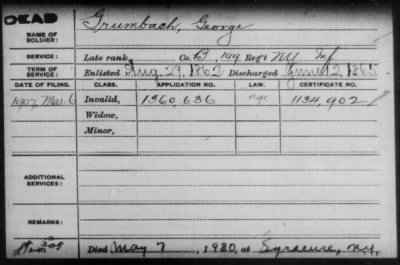 DEAD
NAME OF SOLDIER: Grumbach, George
SERVICE: Late rank, Co. B, 149 Reg't NY Inf
TERM OF SERVICE: Enlisted Aug. 29, 1862 Discharged June 12, 1865
DATE OF FILING. CLASS. APPLICATION NO. LAW. CERTIFICATE NO.
1907 Mar. 6 Invalid, 1360,636 age 1134,902
Widow,
Minor,
ADDITIONAL SERVICES:
REMARKS:
Died May 7, 1920, at Syracuse, N.Y.